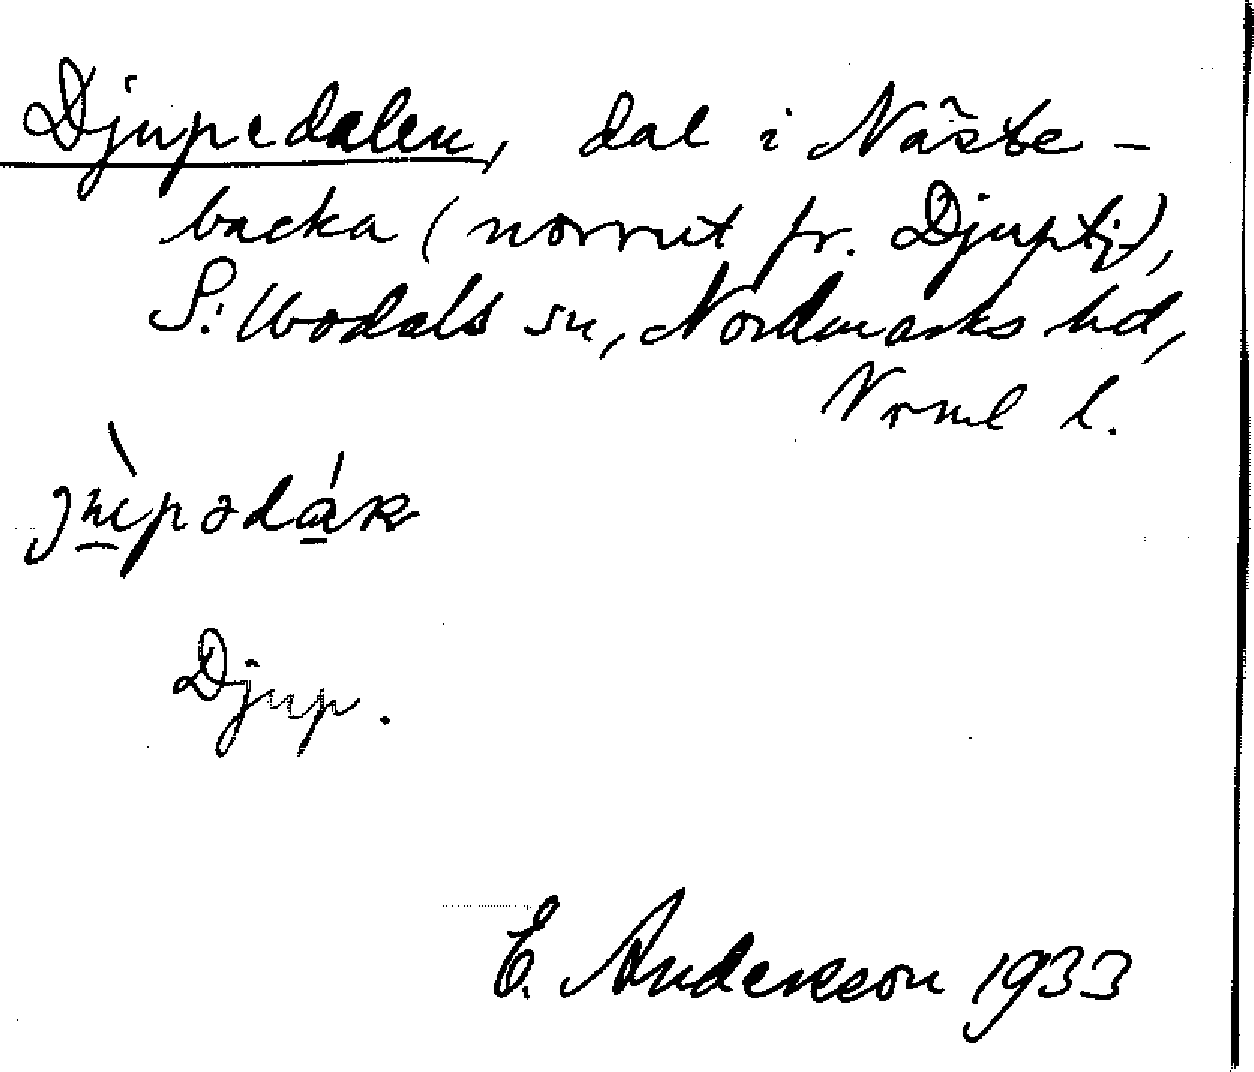 Djupedalen, dal i Näste-
backa (norrut fr. Djuptj),
S: Ubodals sn, Nordmarks hd,
Vrml l.
Djup.
E. Andersson 1933